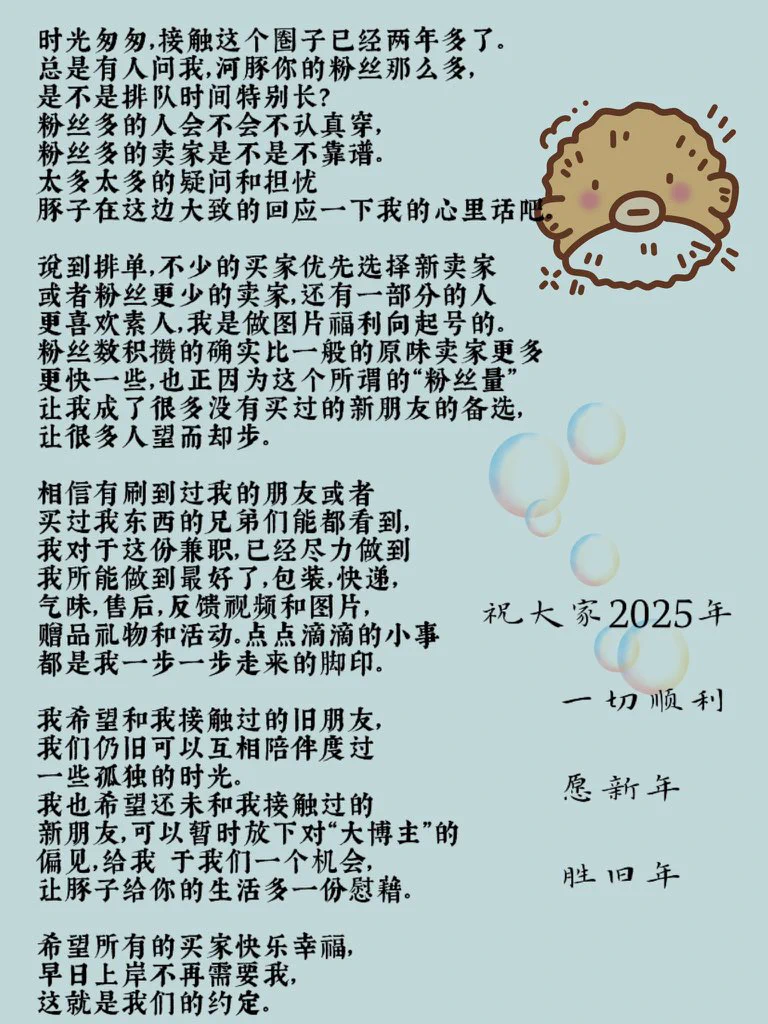 时光匆匆,接触这个圈子已经两年多了。
总是有人问我,河豚你的粉丝那么多,
是不是排队时间特别长?
粉丝多的人会不会不认真穿,
粉丝多的卖家是不是不靠谱。
太多太多的疑问和担忧
豚子在这边大致的回应一下我的心里话吧。
说到排单,不少的买家优先选择新卖家
或者粉丝更少的卖家,还有一部分的人
更喜欢素人,我是做图片福利向起号的。
粉丝数积攒的确实比一般的原味卖家更多
更快一些,也正因为这个所谓的“粉丝量”
让我成了很多没有买过的新朋友的备选,
让很多人望而却步。
相信有刷到过我的朋友或者
买过我东西的兄弟们能都看到,
我对于这份兼职,已经尽力做到
我所能做到最好了,包装,快递,
气味,售后,反馈视频和图片,
赠品礼物和活动。点点滴滴的小事
都是我一步一步走来的脚印。
我希望和我接触过的旧朋友,
我们仍旧可以互相陪伴度过
一些孤独的时光。
我也希望还未和我接触过的
新朋友,可以暂时放下对“大博主”的
偏见,给我 于我们一个机会,
让豚子给你的生活多一份慰藉。
希望所有的买家快乐幸福,
早日上岸不再需要我,
这就是我们的约定。
祝大家2025年
一切顺利
愿新年
胜旧年